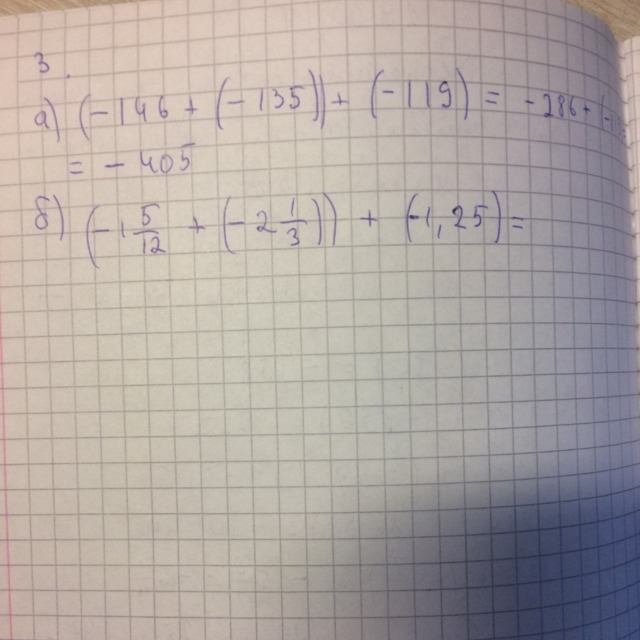 3.
а) (-146 + (-135)) + (-119) = -286 + (-
= -405
б) (-1 5/12 + (-2 1/3)) + (-1,25) =